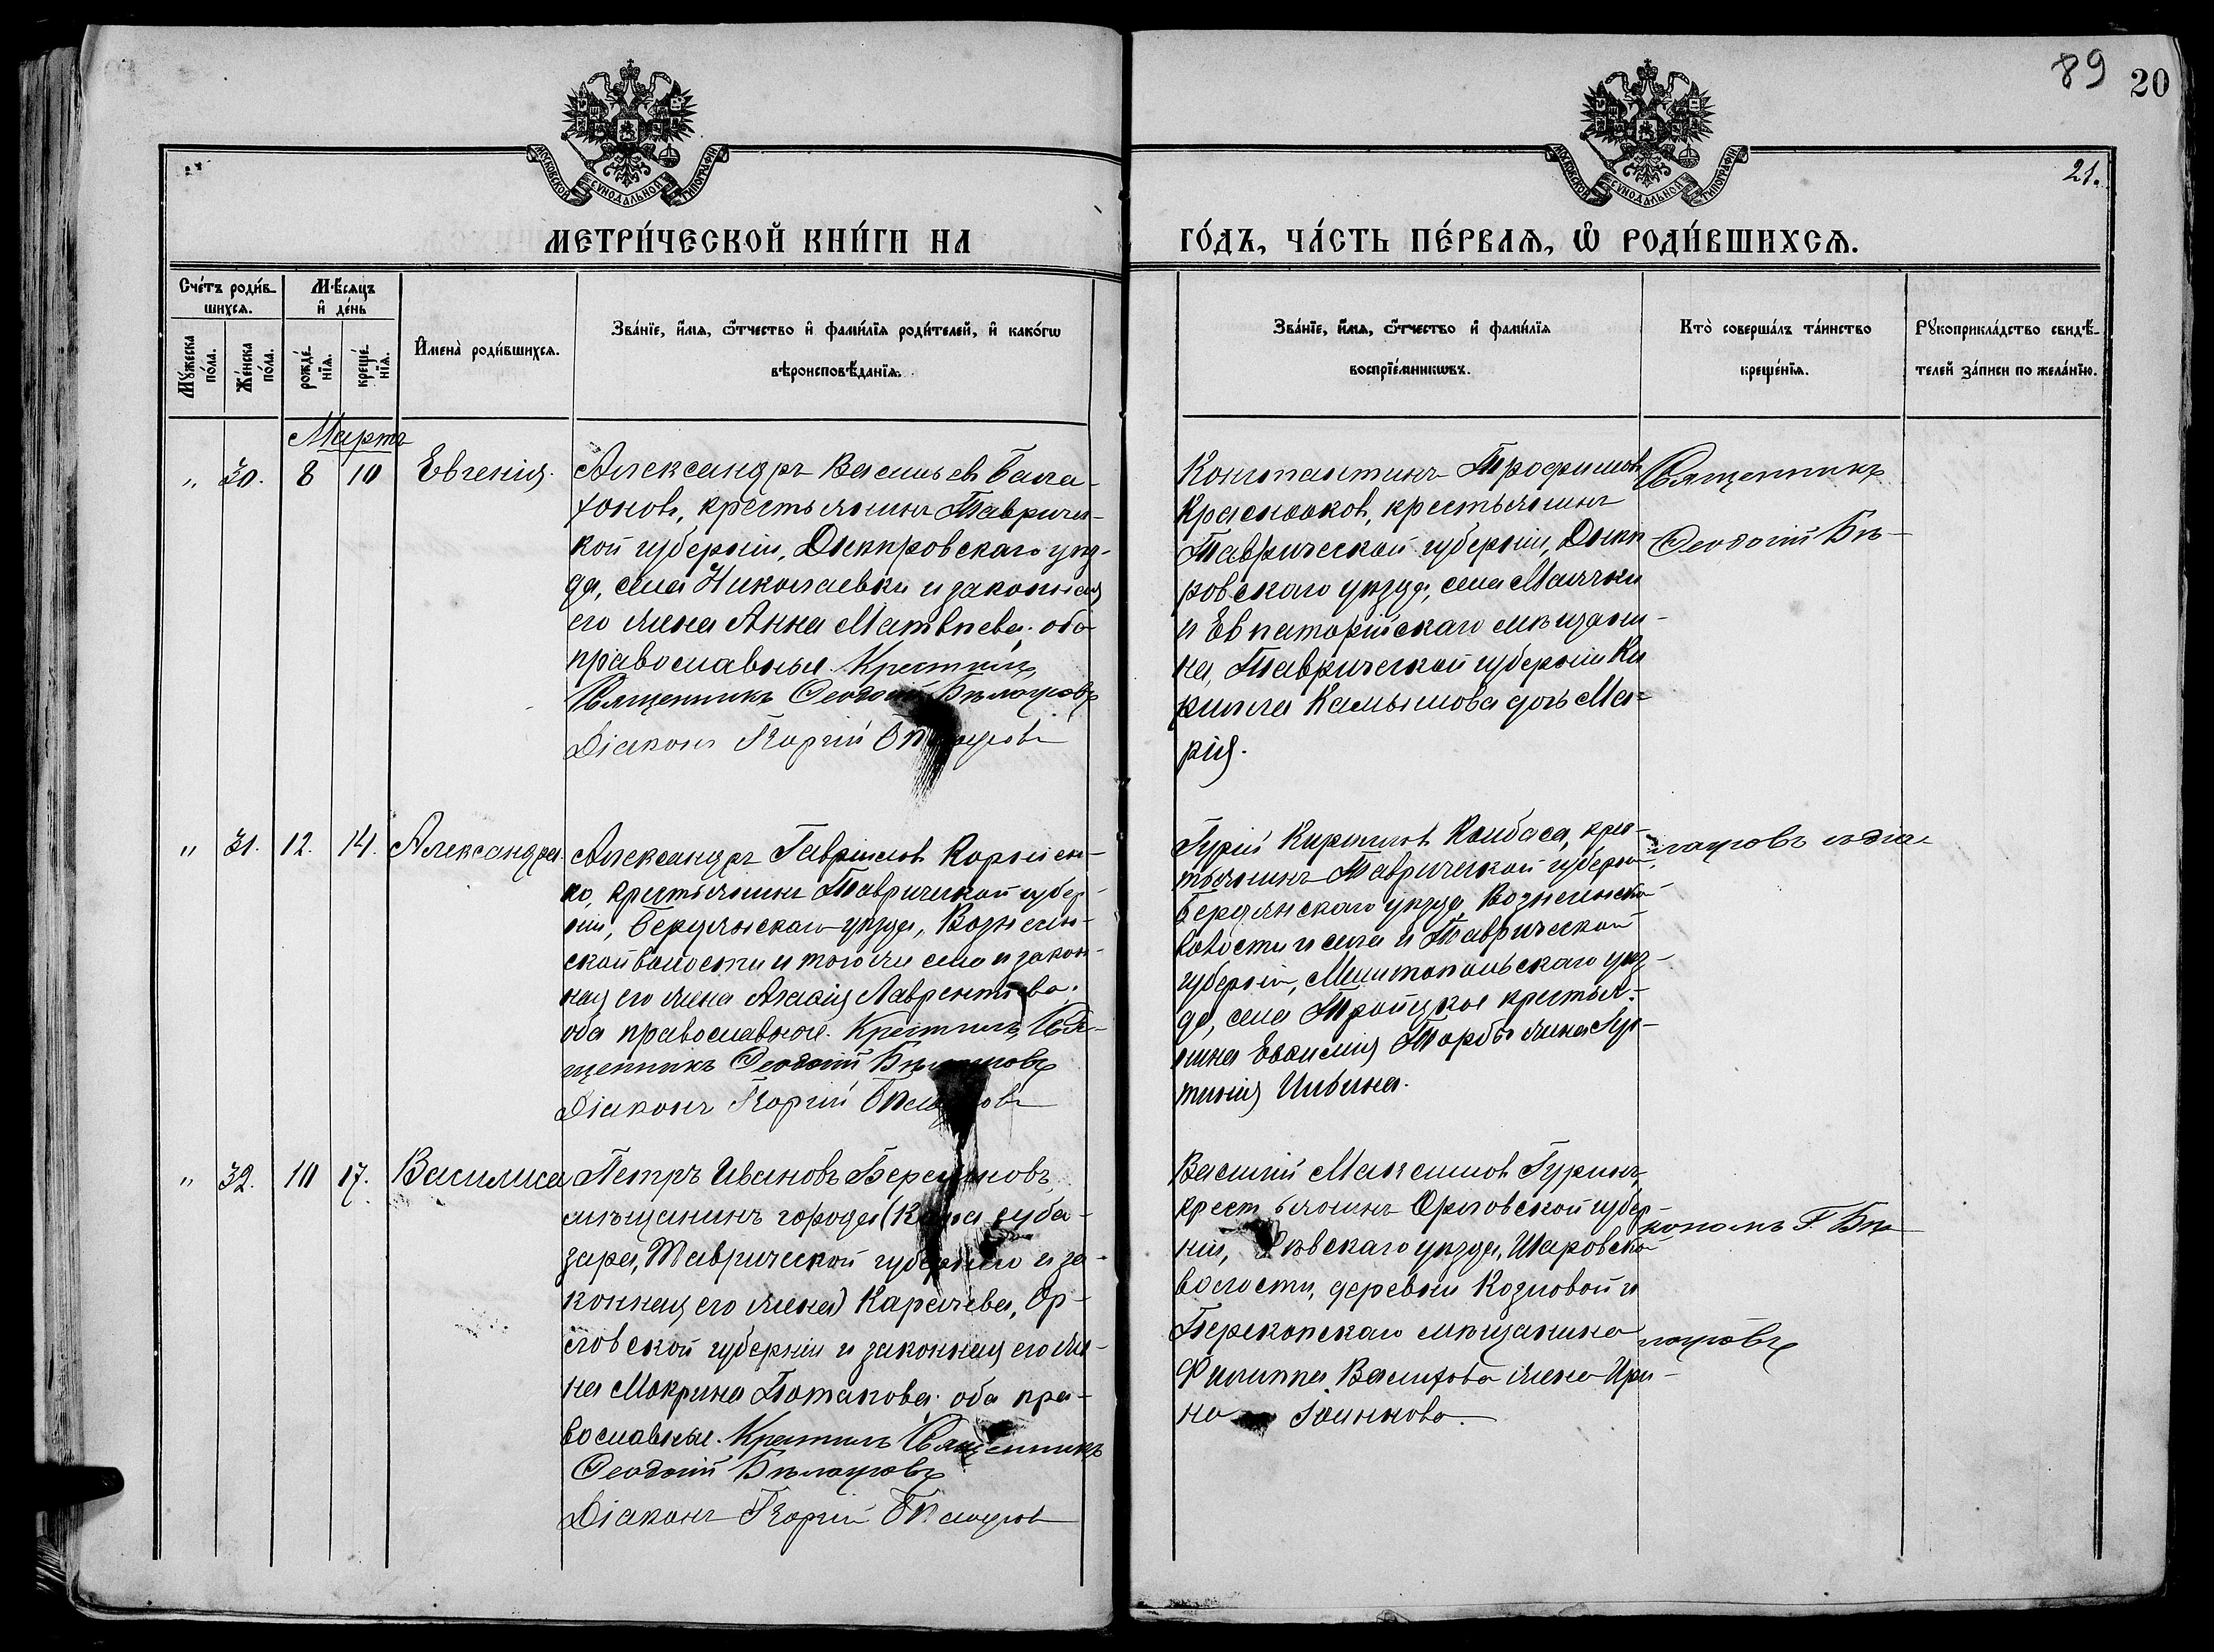 89
20
МОСКОВСКОЙ СѴНОДАЛЬНОЙ ТИПОГРАФІИ
МОСКОВСКОЙ СѴНОДАЛЬНОЙ ТИПОГРАФІИ
21.
МЕТРИ́ЧЕСКОЙ КНИ́ГИ НА
ГО́ДЪ, ЧА́СТЬ ПЕ́РВАѦ, Ѡ҆ РОДИ́ВШИХСѦ.
Сче́тъ роди́в-
шихсѧ.
Мꙋ́жеска
по́ла.
Же́нска
по́ла.
Мѣ́сѧцъ
и҆ де́нь
рожде́-
нїѧ.
креще́-
нїѧ.
И҆мена̀ роди́вшихсѧ.
Зва́нїе, и҆́мѧ, ѻ҆́тчество и҆ фами́лїѧ роди́телей, и҆ како́гѡ
вѣроисповѣ́данїѧ.
Зва́нїе, и҆́мѧ, ѻ҆́тчество и҆ фами́лїѧ
воспрїе́мникѡвъ.
Кто̀ соверша́лъ та́инство
креще́нїѧ.
Рꙋкоприкла́дство свидѣ́-
телей за́писи по жела́нїю.
Мартъ
" 30. 8 10 Евгенія.
Александръ Васильевъ Бала-
хоновъ, крестьянинъ Тавричес-
кой губерніи, Днѣпровскаго уѣз-
да, села Николаевки и законная
его жена Анна Матвѣева; оба
православные. Крестилъ
Священникъ Ѳеодосій Бѣлоусовъ
Діаконъ Георгій Бѣлоусовъ
Константинъ Трофимовъ
крестьянинъ
Таврической губерніи, Днѣп
ровскаго уѣзда, села Маячки
и Евпаторійскаго мѣщани-
на, Таврической губерніи Ки
рилла Камышова дочь Ма-
рія.
Священникъ
Ѳеодосій Бѣ-
" 31. 12. 14. Александра.
Александръ Гавриловъ Корніен-
ко, крестьянинъ Таврической губер-
ніи, Бердянскаго уѣзда, Вознесен-
ской волости и того же села и закон-
ная его жена Агафія Лаврентьева;
оба православные. Крестилъ Свя-
щенникъ Ѳеодосій Бѣлоусовъ
Діаконъ Георгій Бѣлоусовъ
Гурій Кирилловъ Колбаса, крес-
тьянинъ Таврической губерніи,
Бердянскаго уѣзда Вознесенской
волости и села и Таврической
губерніи, Мелитопольскаго уѣз-
да, села Троицкое крестья-
нина Торбы жена
Ильина.
лоусовъ съ діа-
" 32. 10 17. Василиса
Петръ Ивановъ
мѣщанинъ города (Кара суба-
зара, Таврической губерніи и за-
конная его жена) Карачева, Ор-
ловской губерніи и законная его же-
на Макрина Потапова; оба пра-
вославные. Крестилъ Священникъ
Ѳеодосій Бѣлоусовъ
Діаконъ Георгій Бѣлоусовъ
Василій Максимовъ Гуринъ,
крестьянинъ Орловской губер-
ніи, уѣзда, Шаровской
волости, деревни Козловой и
Перекопскаго мѣщанина
Филиппа жена Ири-
на
кономъ Г Бѣ-
лоусовъ